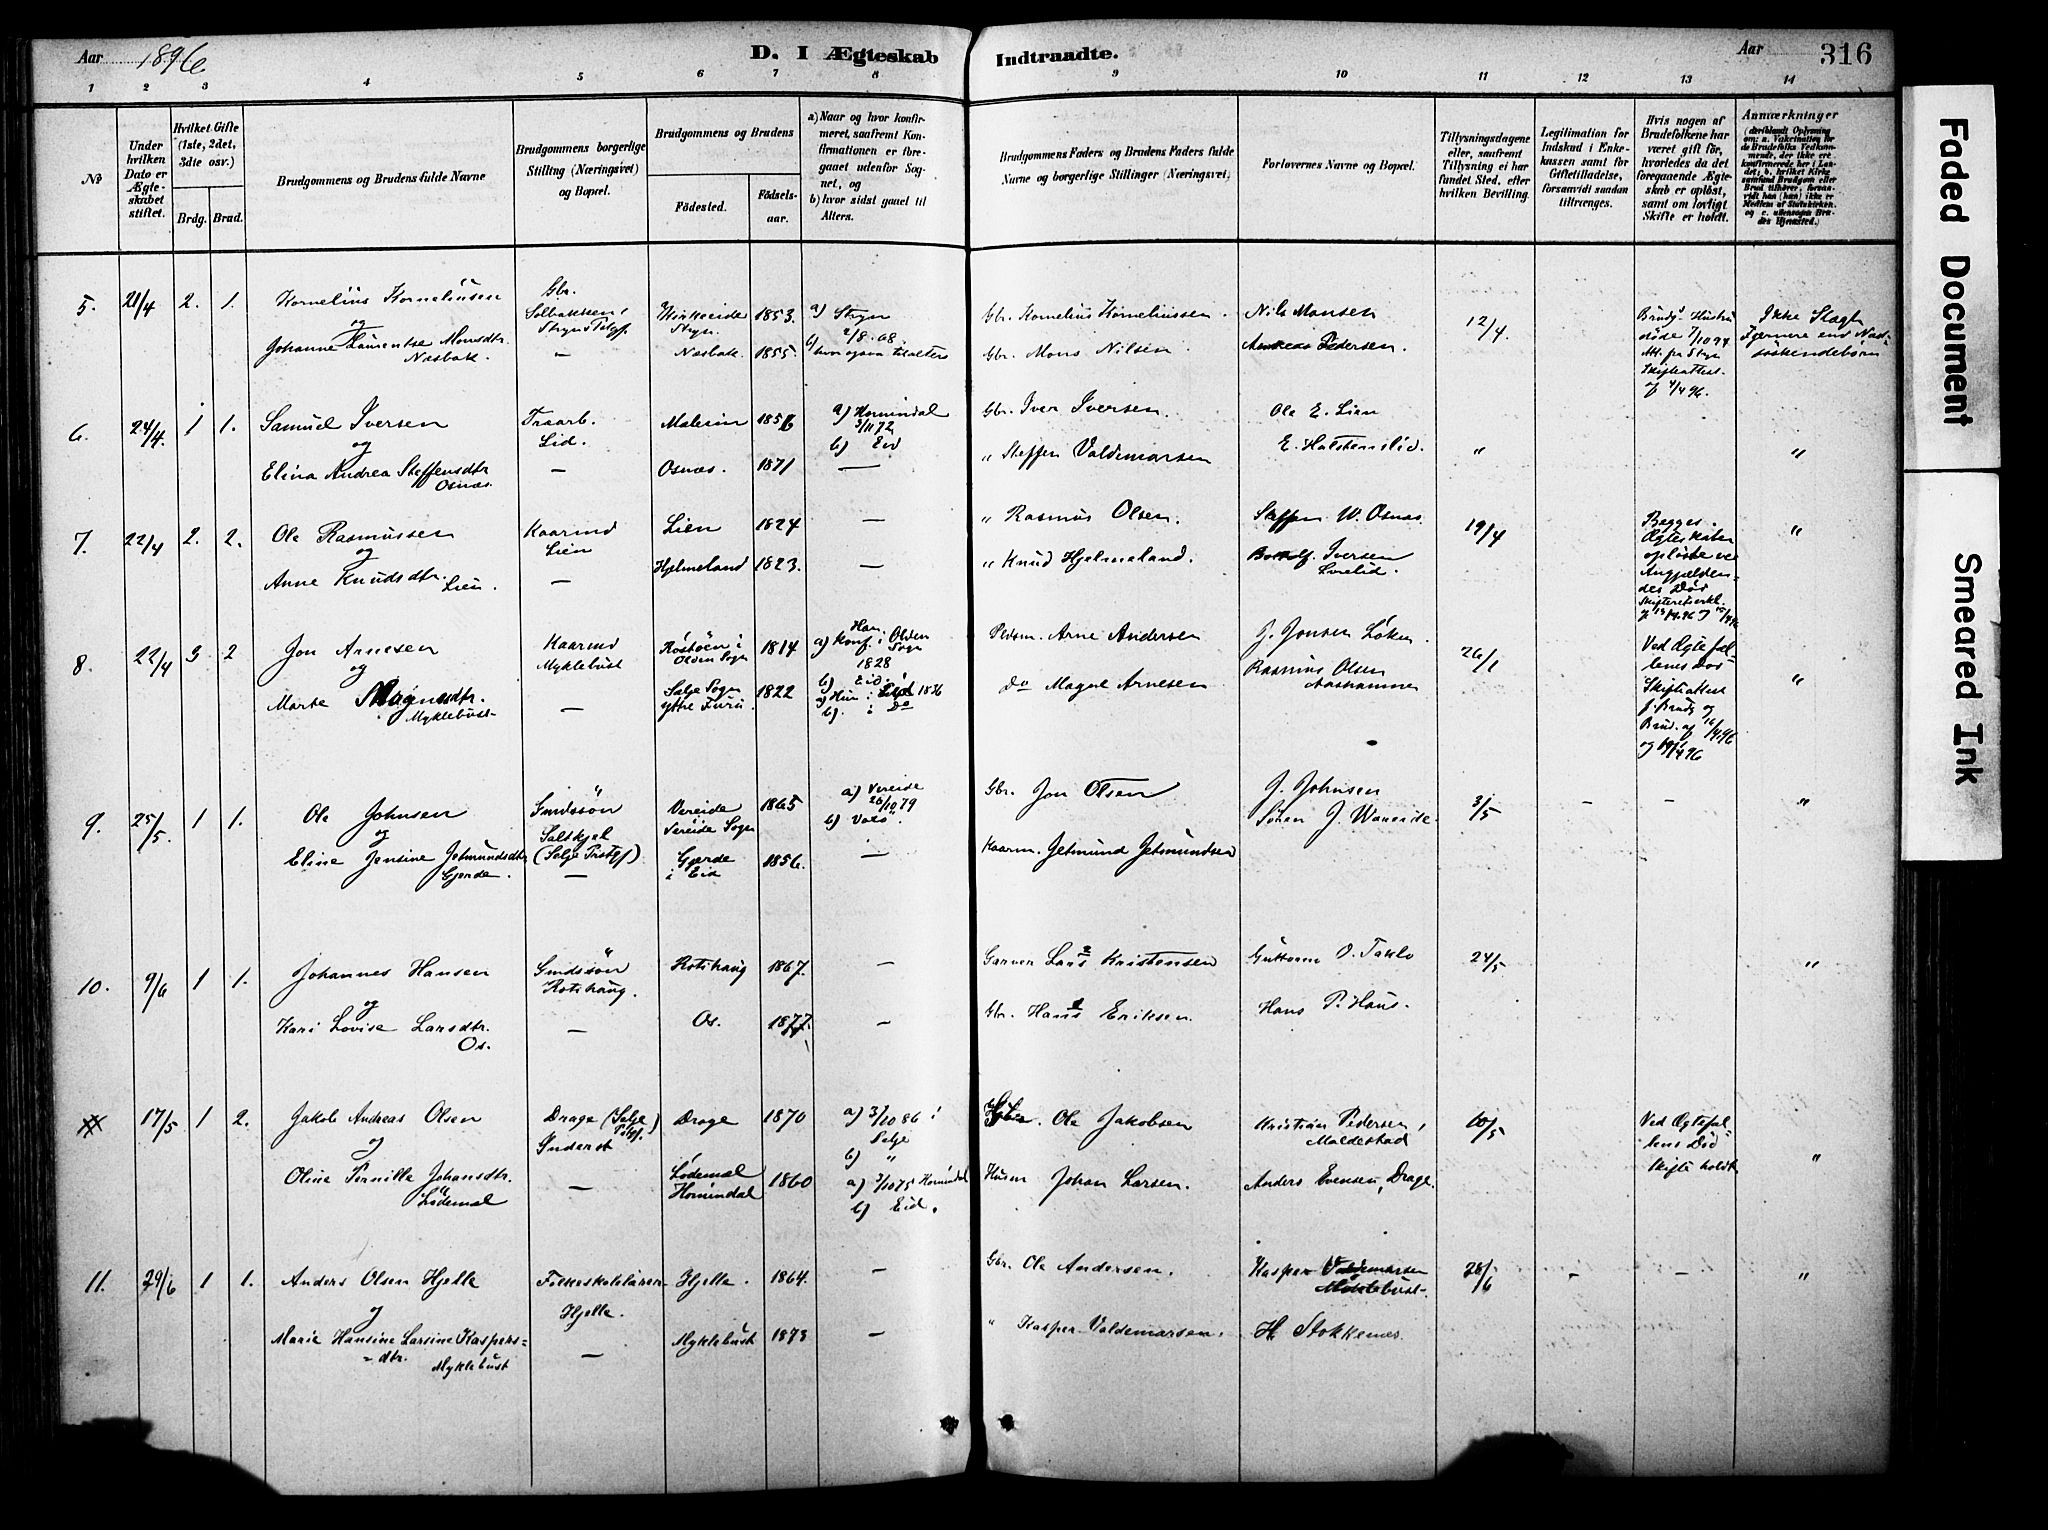 Aar 1896 D. I Ægteskab Indtraadte. Aar 316
1 2 3 4 5 6 7 8 9 10 11 12 13 14
No
Under hvilken Dato er Ægteskabet stiftet.
Hvilket Gifte (1ste, 2det, 3die osv.)
Brdg. Brud.
Brudgommens og Brudens fulde Navne
Brudgommens borgerlige Stilling (Næringsvei) og Bopæl.
Brudgommens og Brudens
Fødested. Fødselsaar.
a) Naar og hvor konfirmeret, saafremt Konfirmationen er foregaaet udenfor Sognet, og
b) hvor sidst gaaet til Alters.
Brudgommens Faders og Brudens Faders fulde Navne og borgerlige Stillinger (Næringsvei).
Forlovernes Navne og Bopæl.
Tillysningsdagene eller, saafremt Tillysning ei har fundet Sted, efter hvilken Bevilling.
Legitimation for Indskud i Enkekassen samt for Giftetilladelse, forsaavidt saadan tiltrænges.
Hvis nogen af Brudefolkene har været gift før, hvorledes da det foregaaende Ægteskab er opløst, samt om lovligt Skifte er holdt.
Anmærkninger
5. 21/4 2. 1. Kornelius Korneliussen Gbr. Solbakken, Stryn Prstgj. Stryn. 1853. a) Stryn 2/8. 68. Gbr. Kornelius Korneliussen. Nils Monsen 12/4 Ikke Slægt
og
Johanne Laurentse Monsdtr. Næsbak. — Næsbak. 1855. Gbr. Mons Nilsen. Andreas Pedersen.
6. 24/4. 1 1. Samuel Iversen Traarb. Lid. 1856 a) Hornindal 3/11 72 b) Eid Gbr. Iver Iversen. Ole E. Lien
og
Elina Andrea Steffensdtr. Osnæs. — Osnæs. 1871 — " Steffen Valdemarsen E. Halstenslid. " "
7. 22/4 2. 2. Ole Rasmussen Kaarmd Lien Lien 1824 — " Rasmus Olsen. Steffen W. Osnæs 19/4 Begges Ægteskaber opløste ved Angjældendes Død "
og
Anne Knudsdtr. Lien. — Hjelmeland 1823. — " Knud Hjelmeland. Iversen
8. 22/4 3 2 Jon Arnesen Kaarmd Myklebust Olden Sogn 1814 a) Konf. i Olden Sogn 1828 b) Eid. Arne Andersen J. Jonsen Løken 26/1 Ved Ægtefællens Død Skifteattest f. Brudg og Brud. af 16/4 96 "
og
Marte Magnesdtr. Myklebust — Selje Sogn 1822 1836 b) i Do Do Magne Arnesen Rasmus Olsen Aashammer
9. 25/5. 1 1. Ole Johnsen Gmdssøn Vereide Vereide Sogn 1865 a) Vereide 26/10 79 Gbr. Jon Olsen J. Johnsen 3/5 — — "
og
Eline Jensine Jetmundsdtr. Gjerde. (Selje Prstgj) — Gjerde i Eid 1856. — Kaarm. Jetmund Jetmundsen Søren J.
10. 9/6 1 1. Johannes Hansen Gmdssøn Rotihaug. Rotihaug 1867. — Garver Lars 2 Kristensen Guttorm O. Taklo 24/5 "
og
Kari Lovise Larsdtr. Os. — Os. 1877. — Gbr. Hans 1 Eriksen. Hans P. Haus.
17/5 1 2. Jakob Andreas Olsen Drage (Selje Prstgj.) Inderst Drage 1870 a) 3/10 86 i Selje b) " Ole Jakobsen Kristian Pedersen, Maldestad 10/5 Ved Ægtefællens Død Skifte holdt "
og
Oline Pernille Johansdtr. Lødemel — Lødemel Hornindal 1860 a) 3/10 75 Hornindal b) Eid. Husm Johan Larsen. Anders Evensen, Drage.
11. 29/6 1 1. Anders Olsen Hjelle Folkeskolelærer Hjelle. Hjelle. 1864. — Gbr. Ole Andersen. Kasper Valdemarsen Myklebust. 28/6 — — "
og
Marie Hansine Larsine Kaspersdtr. Myklebust — Myklebust 1873 — " Kasper Valdemarsen. H. Stokkenæs.
Faded Document
Smeared Ink